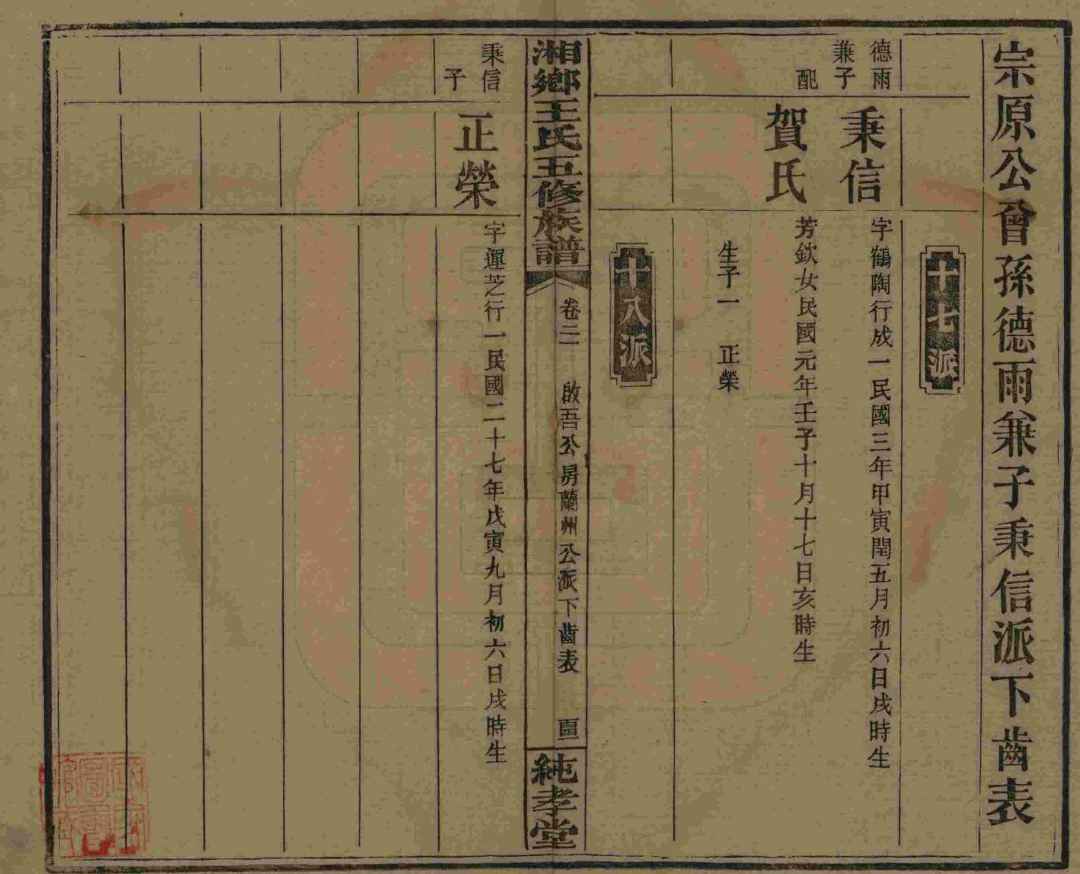 宗原公曾孫德雨兼子秉信派下齒表
十七派
德雨
兼子
秉信
字鶴陶行成一民國三年甲寅閏五月初六日戌時生
配
賀氏
芳欽女民國元年壬子十月十七日亥時生
生子一 正榮
十八派
湘鄉王氏五修族譜
卷二
啟吾公房蘭州公派下齒表
純孝堂
秉信
子
正榮
字運芝行一民國二十七年戊寅九月初六日戌時生